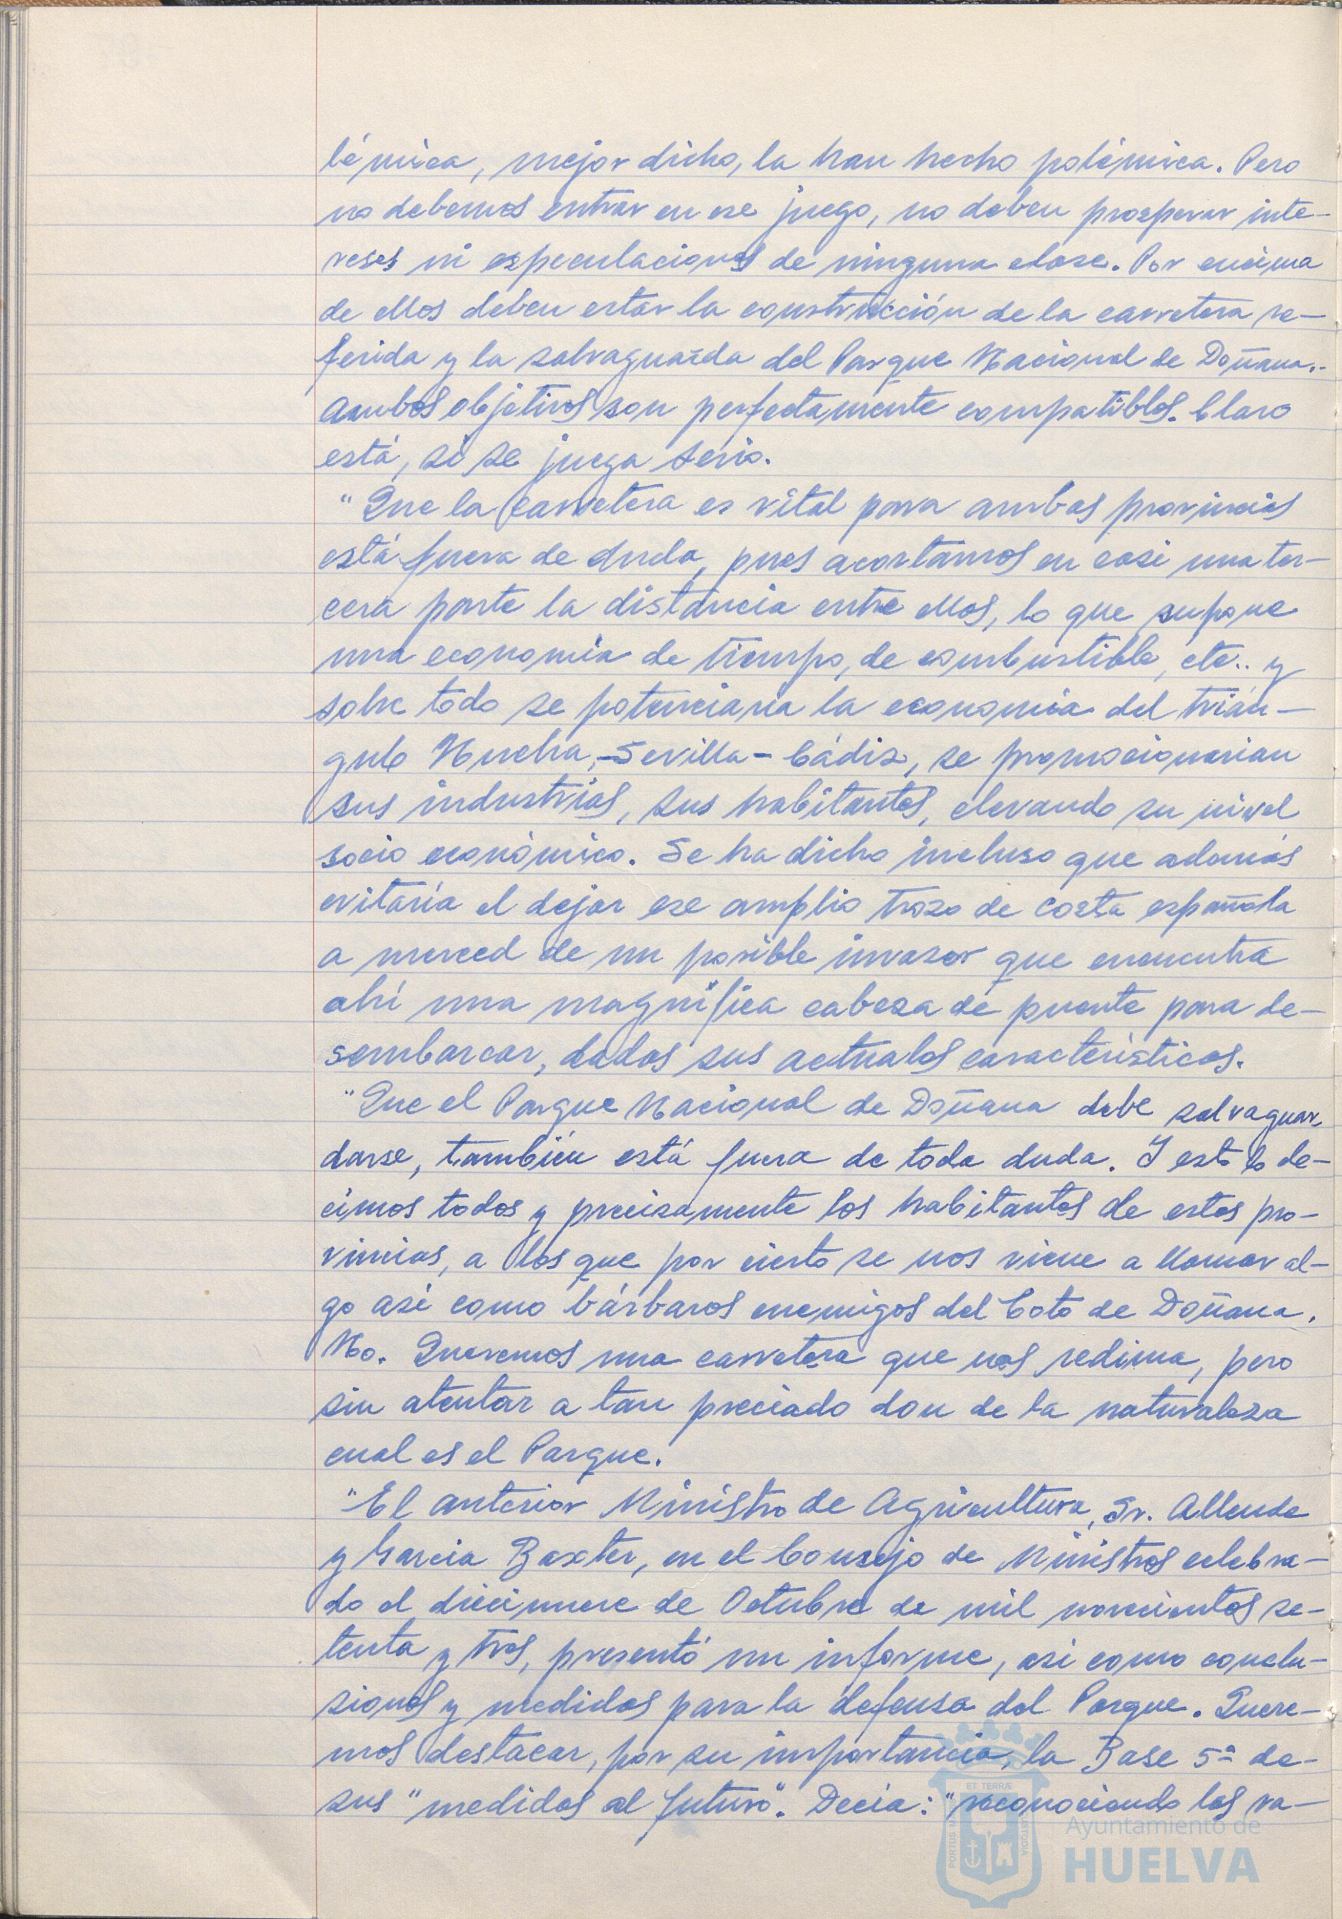 lémica, mejor dicho, la han hecho polémica. Pero
no debemos entrar en ese juego, no deben prosperar inte-
reses ni especulaciones de ninguna clase. Por encima
de ellos deben estar la construcción de la carretera re-
ferida y la salvaguarda del Parque Nacional de Doñana.-
Ambos objetivos son perfectamente compatibles. Claro
está, si se juega serio.
"Que la carretera es vital para ambas provincias
está fuera de duda, pues acortamos en casi una ter-
cera parte la distancia entre ellas, lo que supone
una economía de tiempo, de combustible, etc.. y
sobre todo se potenciaria la economia del trián-
gulo Huelva,-Sevilla-Cádiz, se promocionarian
sus industrias, sus habitantes, elevando su nivel
socio económico. Se ha dicho incluso que además
evitaría el dejar ese amplio trozo de costa española
a merced de un posible invasor que encuentra
ahí una magnífica cabeza de puente para de-
sembarcar, dadas sus actuales características.
"Que el Parque Nacional de Doñana debe salvaguar-
darse, también está fuera de toda duda. Y esto lo de-
cimos todos y precisamente los habitantes de estas pro-
vincias, a los que por cierto se nos viene a llamar al-
go así como bárbaros enemigos del Coto de Doñana.
No. Queremos una carretera que nos redima, pero
sin atentar a tan preciado don de la naturaleza
cual es el Parque.
"El anterior Ministro de Agricultura, Sr. Allende
y García Baxter, en el Consejo de Ministros celebra-
do el diecinueve de Octubre de mil novecientos se-
tenta y tres, presentó un informe, así como conclu-
siones y medidas para la defensa del Parque. Quere-
mos destacar, por su importancia, la Base 5ª de-
sus "medidas al futuro". Decía: "reconociendo los va-
ET TERRÆ
PORTUS MARIS
CUSTODIA
Ayuntamiento de
HUELVA